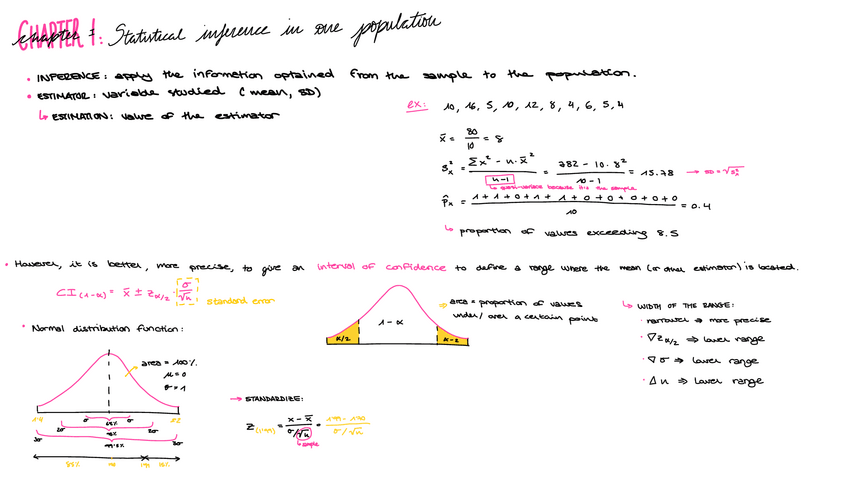 CHAPTER 1: Statistical inference in one population
• INFERENCE: apply the information optained from the sample to the population.
• ESTIMATOR: variable studied (mean, SD)
↳ ESTIMATION: value of the estimator
ex: 10, 16, 5, 10, 12, 8, 4, 6, 5, 4
x̄ = 80/10 = 8
s²ₓ = (Σx² - n·x̄²)/(n-1) = (782 - 10·8²)/(10-1) = 15.78 → SD = √s²ₓ
↳ quasi-variance because it is the sample
p̂ₓ = (1+1+0+1+1+0+0+0+0+0)/10 = 0.4
↳ proportion of values exceeding 8.5
• However, it is better, more precise, to give an interval of confidence to define a range where the mean (or other estimator) is located.
CI (1-α) = x̄ ± z α/2 · σ/√n standard error
1-α
α/2
⇒ area = proportion of values
under/over a certain point
↳ WIDTH OF THE RANGE:
· narrower ⇒ more precise
· ∇ z α/2 ⇒ lower range
· ∇ σ ⇒ lower range
· Δ n ⇒ lower range
• Normal distribution function:
area = 100%
μ = 0
σ = 1
σ σ
2σ 2σ
3σ 3σ
→ STANDARDIZE:
z (199) = (x - x̄)/(σ/√n) = (199 - 190)/(σ/√n)
↳ sample